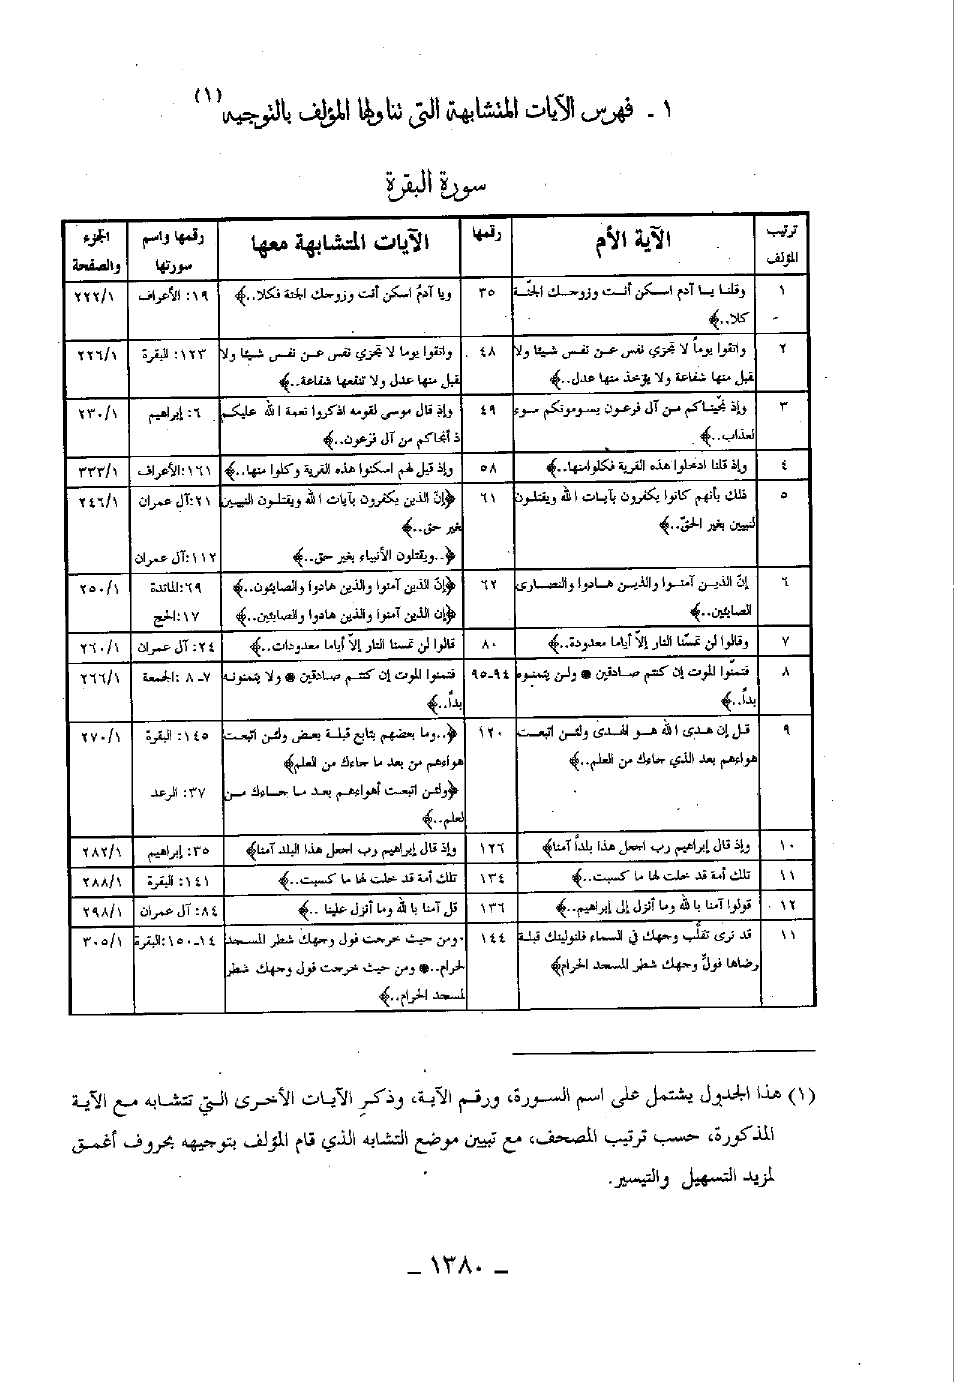 ١ ـ فهرس الآيات المتشابهة التي تناولها المؤلف بالتوجيه(١)
سورة البقرة
ترتيب المؤلف | الآية الأم | رقمها | الآيات المتشابهة معها | رقمها واسم سورتها | الجزء والصفحة
١ | وقلنا يا آدم اسكن أنت وزوجك الجنّة | ٣٥ | ويا آدمُ اسكن أنت وزوجك الجنة فكلا..﴾ | ١٩: الأعراف | ٢٢٢/١
كلا..﴾
٢ | واتقوا يوماً لا تجزي نفس عن نفس شيئا ولا | ٤٨ | واتقوا يوما لا تجزي نفس عن نفس شيئا ولا | ١٢٣: البقرة | ٢٢٦/١
قبل منها شفاعة ولا يؤخذ منها عدل..﴾ | قبل منها عدل ولا تنفعها شفاعة..﴾
٣ | وإذ نجّيناكم من آل فرعون يسومونكم سوء | ٤٩ | وإذ قال موسى لقومه اذكروا نعمة الله عليكم | ٦: إبراهيم | ٢٣٠/١
لعذاب..﴾ | ذ أنجاكم من آل فرعون..﴾
٤ | وإذ قلنا ادخلوا هذه القرية فكلوا منها..﴾ | ٥٨ | وإذ قيل لهم اسكنوا هذه القرية وكلوا منها..﴾ | ١٦١:الأعراف | ٣٣٣/١
٥ | ذلك بأنهم كانوا يكفرون بآيات الله ويقتلون | ٦١ | ﴿إنّ الذين يكفرون بآيات الله ويقتلون النبيين | ٢١:آل عمران | ٢٤٦/١
لنبيين بغير الحقّ..﴾ | غير حق..﴾
﴿..ويقتلون الأنبياء بغير حق..﴾ | ١١٢:آل عمران
٦ | إنّ الذين آمنوا والذين هادوا والنصارى | ٦٢ | ﴿إنّ الذين آمنوا والذين هادوا والصابئون..﴾ | ٦٩:المائدة | ٢٥٠/١
الصابئين..﴾ | ﴿إن الذين آمنوا والذين هادوا والصابئين..﴾ | ١٧:الحج
٧ | وقالوا لن تمسّنا النار إلاّ أياما معدودة..﴾ | ٨٠ | قالوا لن تمسنا النار إلاّ أياما معدودات..﴾ | ٢٤: آل عمران | ٢٦٠/١
٨ | فتمنّوا الموت إن كنتم صادقين * ولن يتمنوه | ٩٤ـ٩٥ | فتمنوا الموت إن كنتم صادقين * ولا يتمنونه | ٧ـ٨ :الجمعة | ٢٦٦/١
بداً..﴾ | بداً..﴾
٩ | قل إن هدى الله هو الهدى ولئن اتبعت | ١٢٠ | ﴿..وما بعضهم بتابع قبلة بعض ولئن اتبعت | ١٤٥: البقرة | ٢٧٠/١
هواءهم بعد الذي جاءك من العلم..﴾ | هواءهم من بعد ما جاءك من العلم﴾
﴿ولئن اتبعت أهواءهم بعد ما جاءك من | ٣٧: الرعد
لعلم..﴾
١٠ | وإذ قال إبراهيم رب اجعل هذا بلداً آمنا﴾ | ١٢٦ | وإذ قال إبراهيم رب اجعل هذا البلد آمنا﴾ | ٣٥: إبراهيم | ٢٨٢/١
١١ | تلك أمة قد خلت لها ما كسبت..﴾ | ١٣٤ | تلك أمة قد خلت لها ما كسبت..﴾ | ١٤١: البقرة | ٢٨٨/١
١٢ | قولوا آمنا بالله وما أنزل إلى إبراهيم..﴾ | ١٣٦ | قل آمنا بالله وما أنزل علينا ..﴾ | ٨٤: آل عمران | ٢٩٨/١
١١ | قد نرى تقلّب وجهك في السماء فلنولينك قبلة | ١٤٤ | ومن حيث خرجت فول وجهك شطر المسجد | ١٤ـ١٥٠:البقرة | ٣٠٥/١
رضاها فولّ وجهك شطر المسجد الحرام﴾ | لحرام..* ومن حيث خرجت فول وجهك شطر
لمسجد الحرام..﴾
(١) هذا الجدول يشتمل على اسم السورة، ورقم الآية، وذكرِ الآيات الأخرى التي تتشابه مع الآية
المذكورة، حسب ترتيب المصحف، مع تبيين موضع التشابه الذي قام المؤلف بتوجيهه بحروف أغمق
لمزيد التسهيل والتيسير.
ـ ١٣٨٠ ـ